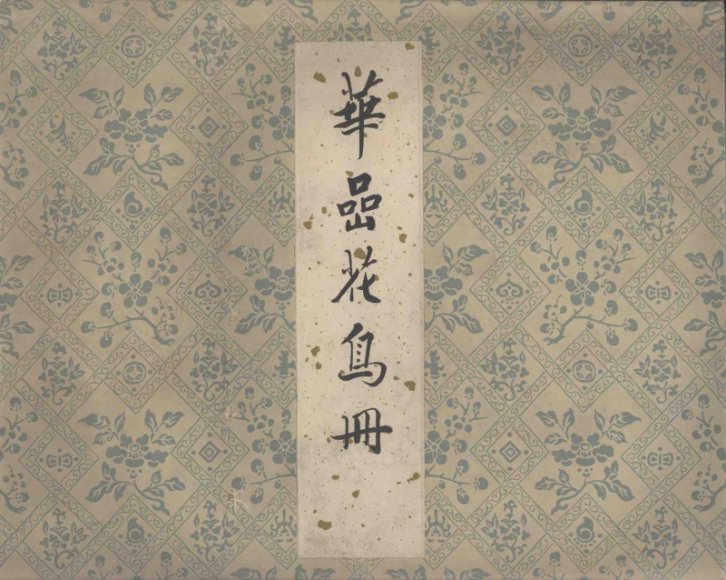 華喦花鳥冊